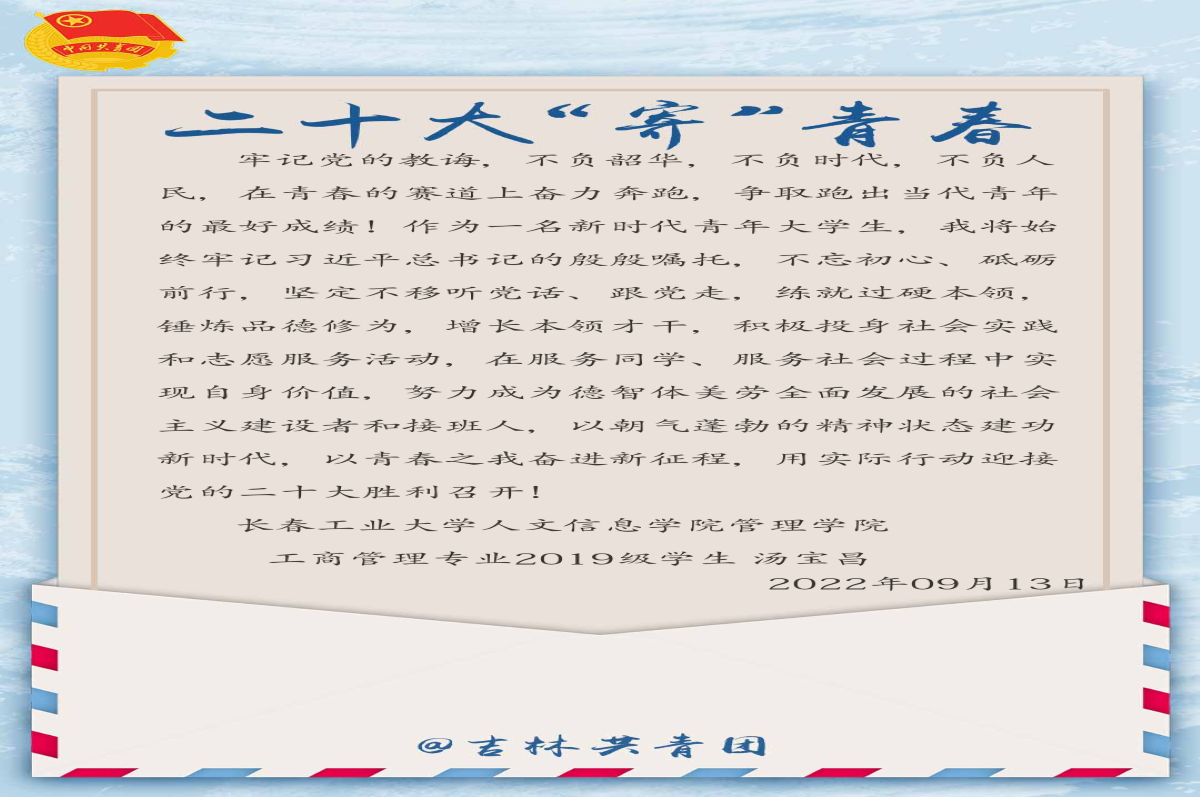 中国共青团
二十大“寄”青春
牢记党的教诲，不负韶华，不负时代，不负人
民，在青春的赛道上奋力奔跑，争取跑出当代青年
的最好成绩！作为一名新时代青年大学生，我将始
终牢记习近平总书记的殷殷嘱托，不忘初心、砥砺
前行，坚定不移听党话、跟党走，练就过硬本领，
锤炼品德修为，增长本领才干，积极投身社会实践
和志愿服务活动，在服务同学、服务社会过程中实
现自身价值，努力成为德智体美劳全面发展的社会
主义建设者和接班人，以朝气蓬勃的精神状态建功
新时代，以青春之我奋进新征程，用实际行动迎接
党的二十大胜利召开！
长春工业大学人文信息学院管理学院
工商管理专业2019级学生 汤宝昌
2022年09月13日
@吉林共青团